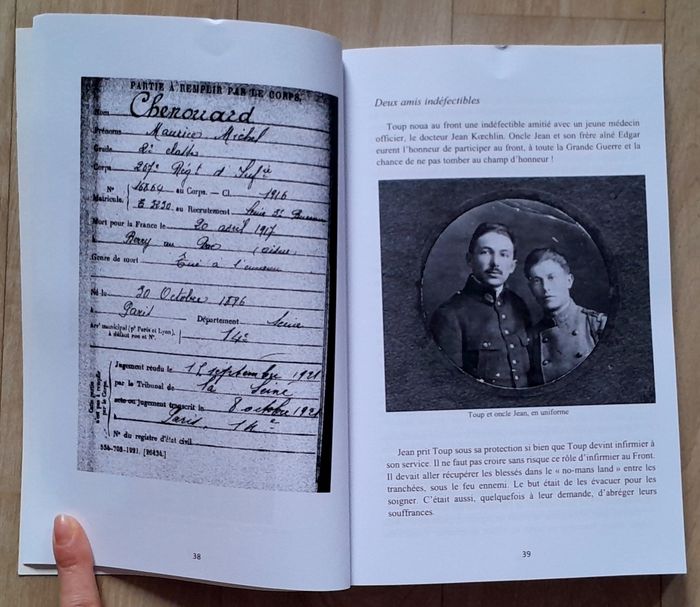 PARTIE A REMPLIR PAR LE CORPS.
Nom Chenouard
Prénoms Maurice Michel
Grade 2e classe
Corps 267e Régt d' Infie
N° 16664 au Corps. — Cl. 1916
Matricule. E 2830 au Recrutement Seine
Mort pour la France le 20 avril 1917
à Berry au Bac (Aisne)
Genre de mort Tué à l'ennemi
Né le 20 Octobre 1896
à Paris Département Seine
Arrt municipal (pr Paris et Lyon), 14e
à défaut rue et N°.
Cette partie n'est pas à remplir par le Corps.
Jugement rendu le 15 septembre 1921
par le Tribunal de la Seine
acte ou jugement transcrit le 8 octobre 1921
à Paris 14e
N° du registre d'état civil
534-708-1921. [26434.]
38
Deux amis indéfectibles
Toup noua au front une indéfectible amitié avec un jeune médecin
officier, le docteur Jean Kœchlin. Oncle Jean et son frère aîné Edgar
eurent l'honneur de participer au front, à toute la Grande Guerre et la
chance de ne pas tomber au champ d'honneur !
Toup et oncle Jean, en uniforme
Jean prit Toup sous sa protection si bien que Toup devint infirmier à
son service. Il ne faut pas croire sans risque ce rôle d'infirmier au Front.
Il devait aller récupérer les blessés dans le « no-mans land » entre les
tranchées, sous le feu ennemi. Le but était de les évacuer pour les
soigner. C'était aussi, quelquefois à leur demande, d'abréger leurs
souffrances.
39